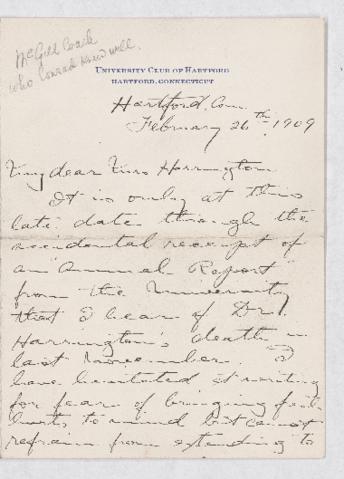 McGill Coach
who Conrad knew well.
UNIVERSITY CLUB OF HARTFORD
HARTFORD, CONNECTICUT
Hartford, Conn.
February 26th 1909
My dear Miss Harrington
It is only at this
late date through the
accidental receipt of
an "Annual Report"
from the University
that I hear of Dr.
Harrington's death in
last November. I
have hesitated at writing
for fear of bringing
to mind but cannot
refrain from extending to